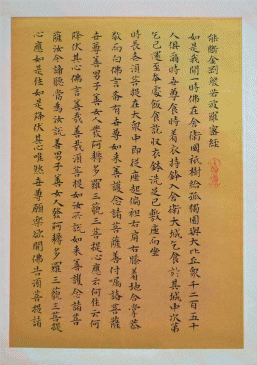 能斷金剛般若波羅蜜經
如是我聞一時佛在舍衛國祇樹給孤獨園與大比丘眾千二百五十
人俱爾時世尊食時著衣持鉢入舍衛大城乞食於其城中次第
乞已還至本處飯食訖收衣鉢洗足已敷座而坐
時長老須菩提在大眾中即從座起偏袒右肩右膝著地合掌恭
敬而白佛言希有世尊如來善護念諸菩薩善付囑諸菩薩
世尊善男子善女人發阿耨多羅三藐三菩提心應云何住云何
降伏其心佛言善哉善哉須菩提如汝所說如來善護念諸菩
薩汝今諦聽當為汝說善男子善女人發阿耨多羅三藐三菩提
心應如是住如是降伏其心唯然世尊願樂欲聞佛告須菩提諸